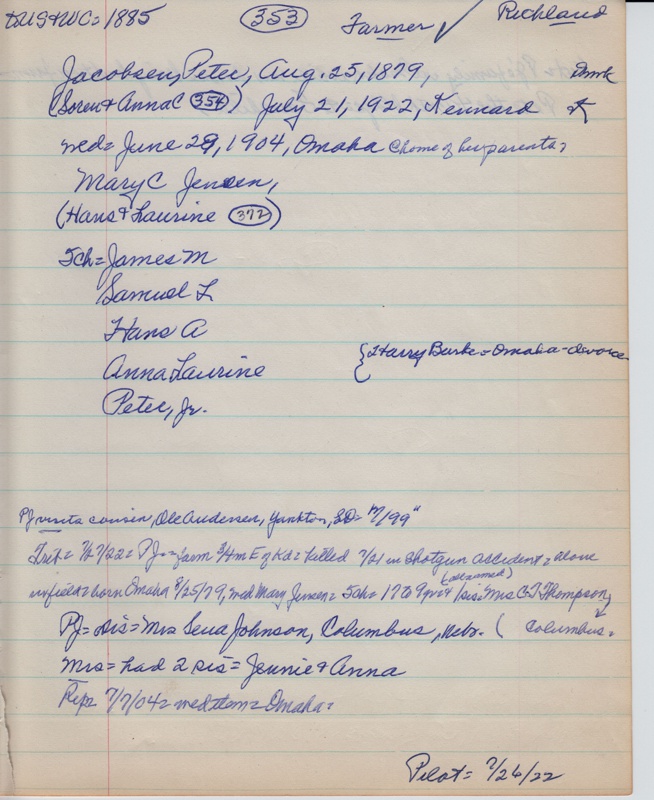 toUS+WC=1885 353 Farmer ✓ Richland
Jacobsen, Peter, Aug. 25, 1879, Dmk
(Soren + Anna C 354) July 21, 1922, Kennard
med= June 29, 1904, Omaha (home of her parents=
Mary C Jensen,
(Hans + Laurine 372)
5ch= James M
Samuel L
Hans A
Anna Laurine {Harry Burke=Omaha-devorce
Peter, Jr.
PJ visits cousin, Ole Andersen, Yankton, SD=
7/22= PJ= farm 3/4m E of Kd= killed 7/21 in shotgun accident= alone
(assumed)
infield= born Omaha 8/25/79, med Mary Jensen= 5ch= 17 to 9 /sis= Mrs C.T. Thompson,
PJ= sis= Mrs Sena Johnson, Columbus, Nebr. ( Columbus=
Mrs= had 2 sis= Jennie + Anna
7/7/04= med Omaha=
Pilot= 7/26/22